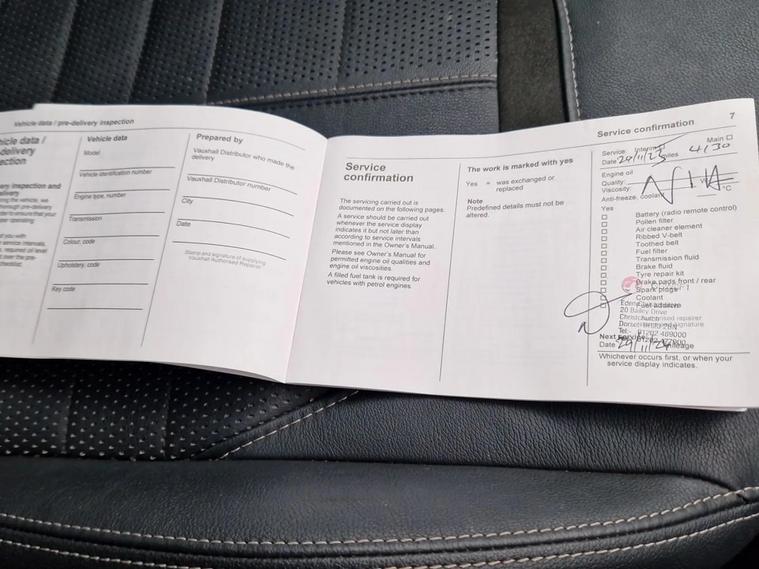 Vehicle data / pre-delivery inspection
Vehicle data
Model
Vehicle identification number
Engine type, number
Transmission
Colour, code
Upholstery, code
Key code
Prepared by
Vauxhall Distributor who made the
delivery
Vauxhall Distributor number
City
Date
Stamp and signature of supplying
Vauxhall Authorised Repairer
Service
confirmation
The servicing carried out is
documented on the following pages.
A service should be carried out
whenever the service display
indicates it but not later than
according to service intervals
mentioned in the Owner's Manual.
Please see Owner's Manual for
permitted engine oil qualities and
engine oil viscosities.
A filled fuel tank is required for
vehicles with petrol engines.
The work is marked with yes
Yes = was exchanged or
replaced
Note
Predefined details must not be
altered.
Service confirmation 7
Service: Interim Main
Date 29/11/23 4130
Engine oil
Quality:
Viscosity: N/A
Anti-freeze, coolant °C
Yes
Battery (radio remote control)
Pollen filter
Air cleaner element
Ribbed V-belt
Toothed belt
Fuel filter
Transmission fluid
Brake fluid
Tyre repair kit
Brake pads front / rear
Spark plugs
Coolant
Fuel additive
20 Bailey Drive
Christchurch
Dorset
Tel:- 01202 469000
Next
Date 29/11/24 Mileage
Whichever occurs first, or when your
service display indicates.